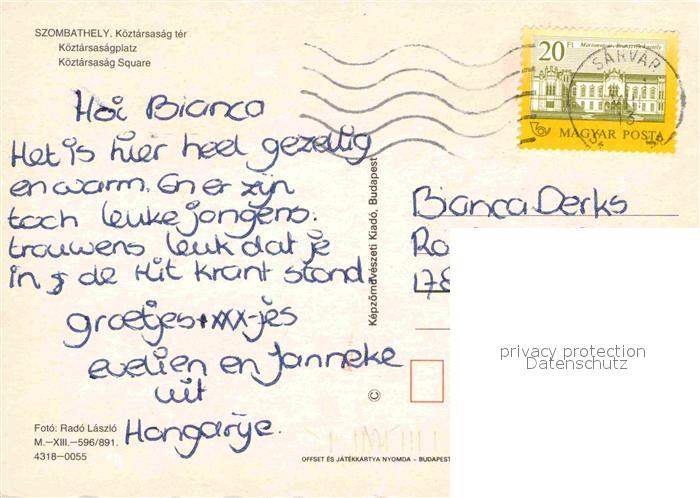 SZOMBATHELY. Köztársaság tér
Köztársaságplatz
Köztársaság Square
Hoi Bianca
Het is hier heel gezellig
en warm. En er zijn
toch leuke jongens.
trouwens leuk dat je
in de Hit krant stond
groetjes + xxx-jes
evelien en Janneke
uit
Hongarije.
Fotó: Radó László
M.—XIII.—596/891.
4318—0055
Képzőművészeti Kiadó, Budapest
©
OFFSET ÉS JÁTÉKKÁRTYA NYOMDA – BUDAPEST
20 Ft
MAGYAR POSTA
SÁRVÁR
Bianca Derks
privacy protection
Datenschutz